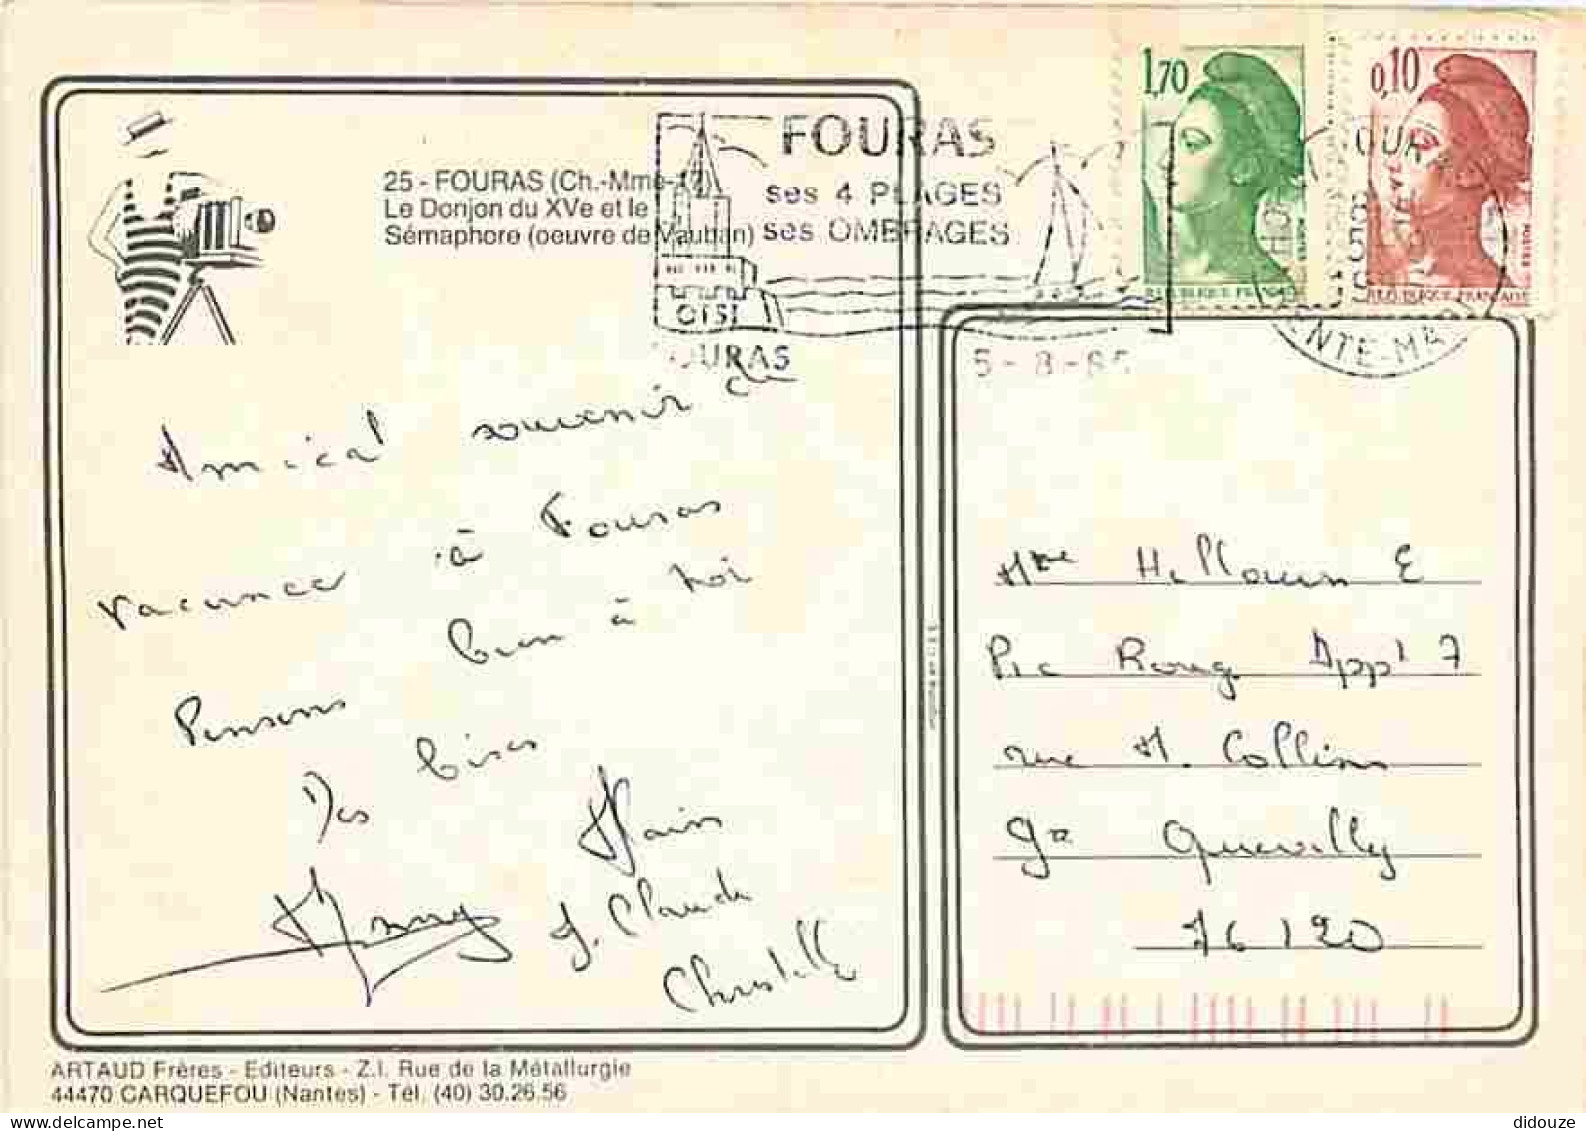 25 - FOURAS (Ch.-Mme-17)
Le Donjon du XVe et le
Sémaphore (oeuvre de Vauban)
FOURAS
ses 4 PLAGES
ses OMBRAGES
OTSI
FOURAS
5-8-85
1,70
0,10
REPUBLIQUE FRANÇAISE
Amical souvenir de
vacance à Fouras
Pensons bien à toi
Des bises
Alain
J. Claude
Christelle
Mme E
Pic Roug Appt 7
rue M. Collin
Gd Quevilly
76120
ARTAUD Frères - Editeurs - Z.I. Rue de la Métallurgie
44470 CARQUEFOU (Nantes) - Tél. (40) 30.26.56
didouze